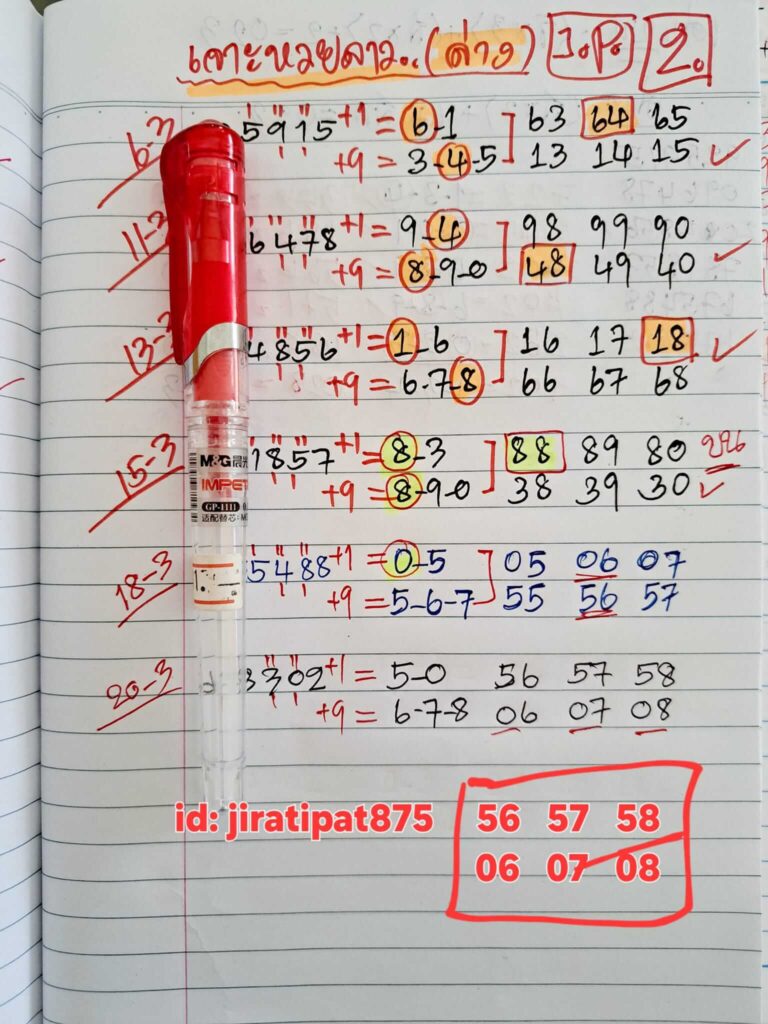 เจาะหวยลาว..(ล่าง) J.P. 2.
6-3 5915 +1 = 6-1 63 64 65
+9 = 3-4-5 13 14 15 ✓
11-3 6478 +1 = 9-4 98 99 90
+9 = 8-9-0 48 49 40 ✓
13-3 4856 +1 = 1-6 16 17 18 ✓
+9 = 6-7-8 66 67 68
15-3 1857 +1 = 8-3 88 89 80 บน
+9 = 8-9-0 38 39 30 ✓
M&G 晨光
IMPET
GP-1111
适配替芯:
18-3 5488 +1 = 0-5 05 06 07
+9 = 5-6-7 55 56 57
20-3 3302 +1 = 5-0 56 57 58
+9 = 6-7-8 06 07 08
id: jiratipat875 56 57 58
06 07 08